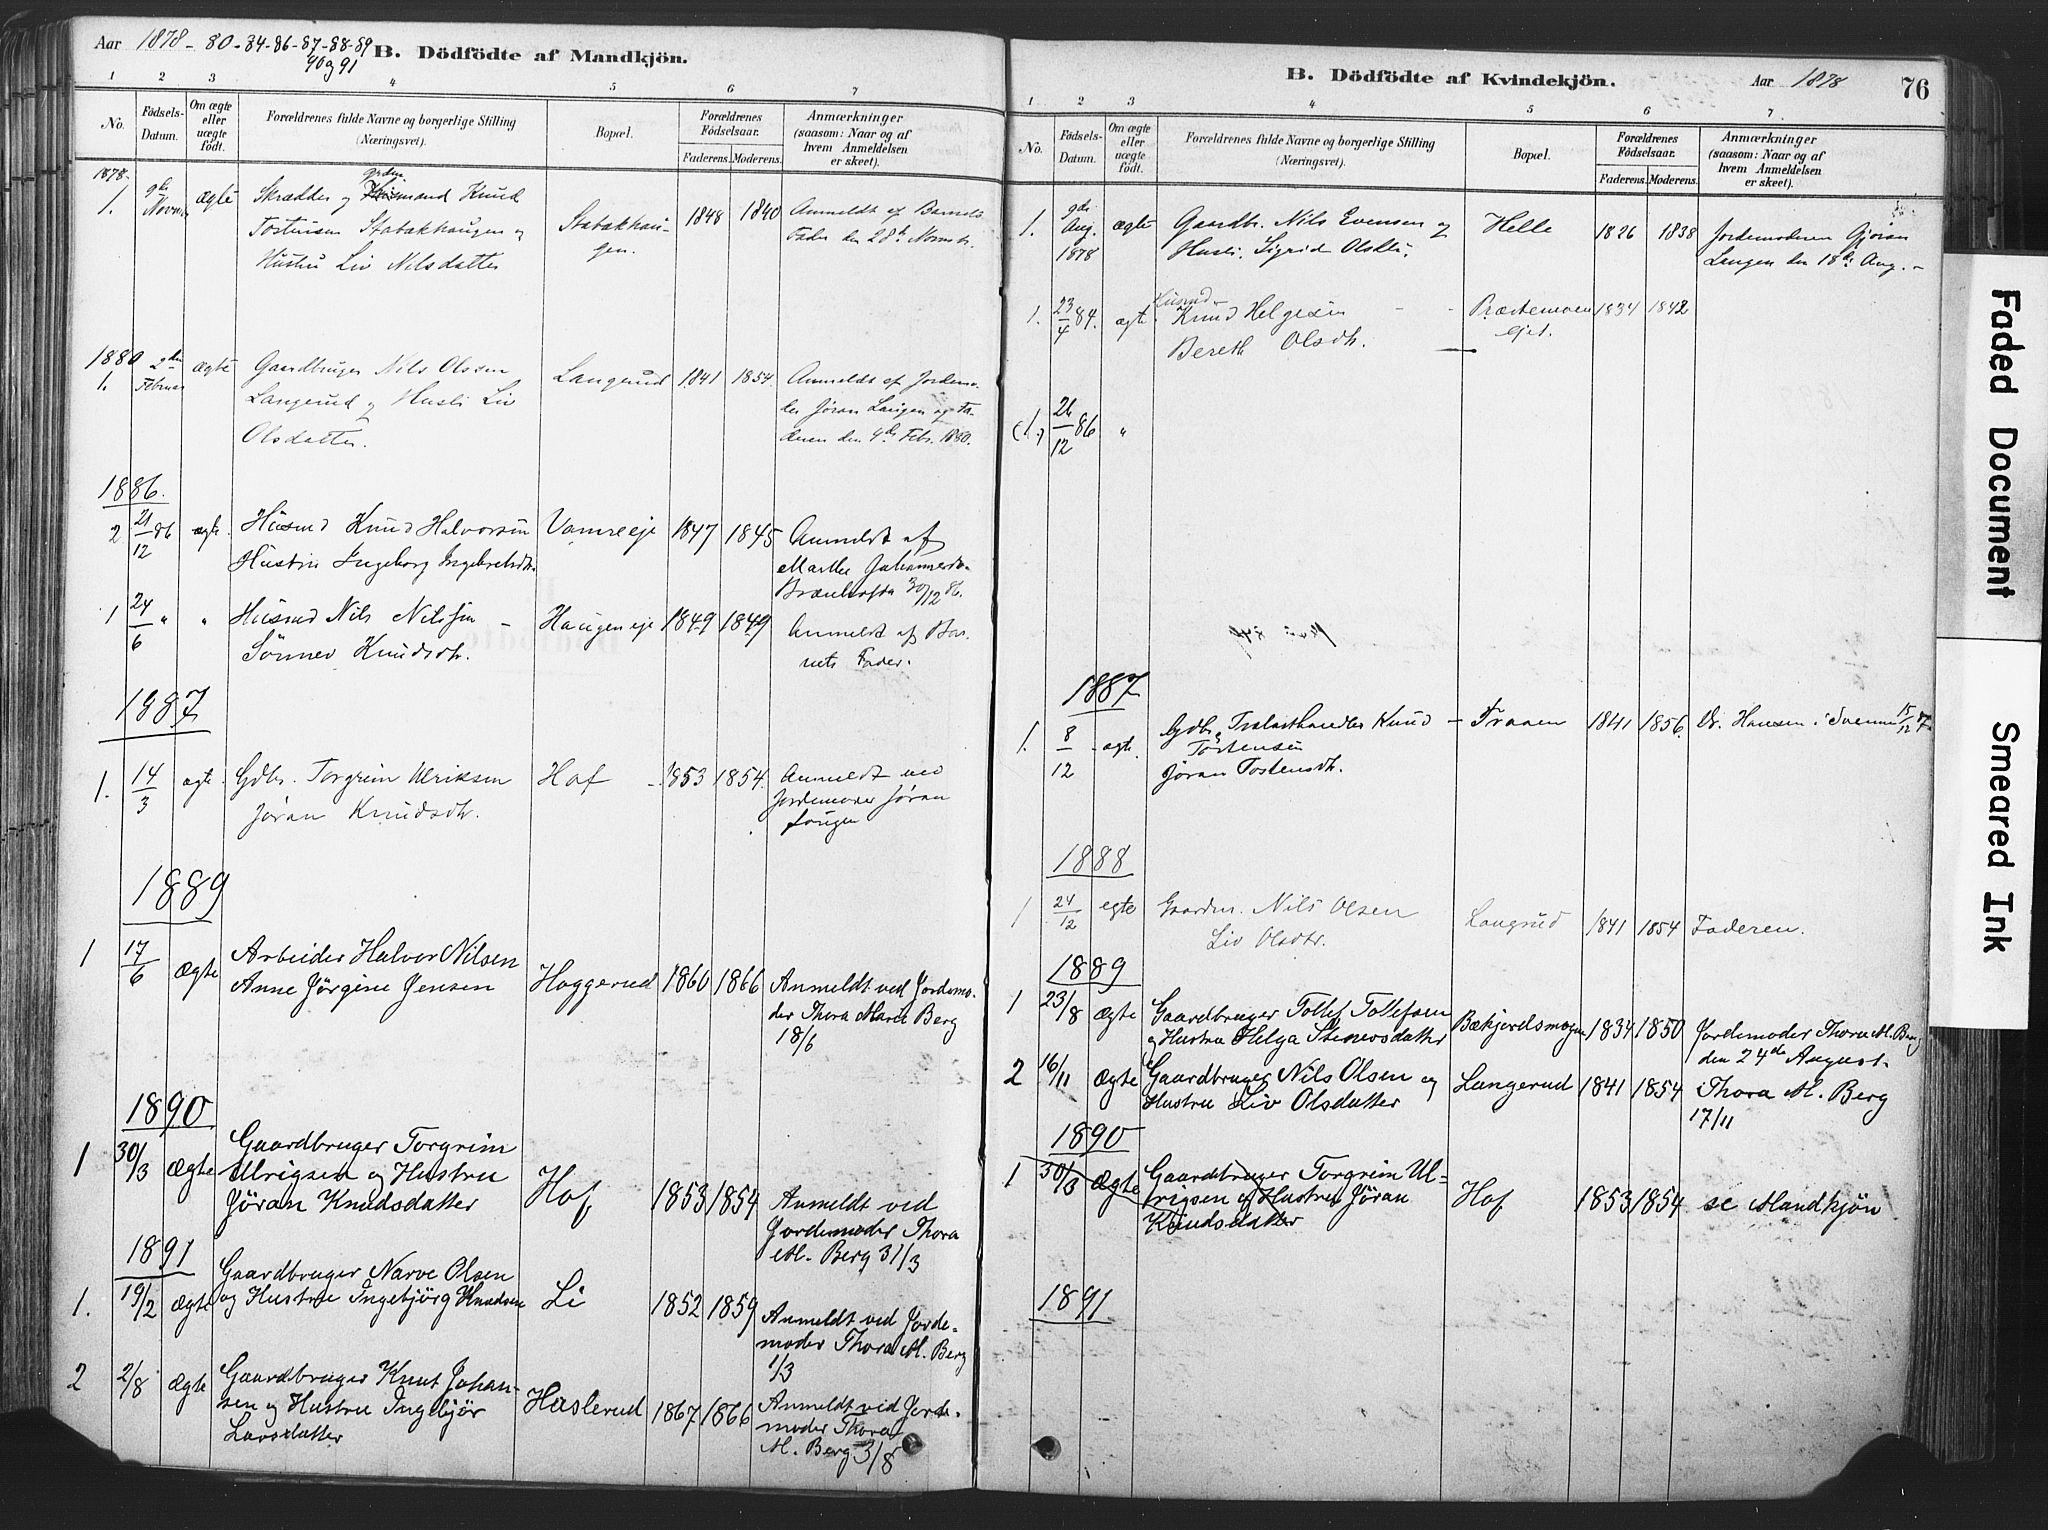 Aar 1878-80-84-86-87-88-89
90 og 91
B. Dödfödte af Mandkjön.
1 2 3 4 5 6 7
No. Födsels-Datum. Om ægte eller uægte födt. Forældrenes fulde Navne og borgerlige Stilling (Næringsvei). Bopæl. Forældrenes Födselsaar. Faderens. Moderens. Anmærkninger (saasom: Naar og af hvem Anmeldelsen er skeet).
1878.
1. 9de Novbr ægte Skrædder og Husmand Knud Stabakhau- 1848 1840 Anmeldt af Barnets
Tostensen Stabakhaugen og gen. Fader den 28de Novembr.
Hustru Liv Nilsdatter
1880
1. 2den Februar ægte Gaardbruger Nils Olssen Langerud 1841 1854. Anmeldt af Jordemo-
Langerud og Hustr. Liv der Jøran Langen og Fa-
Olsdatter. deren den 4de Febr. 1880.
1886.
2 21/12 86 ægte. Husmd Knud Halvorsen Vamreeje 1847 1845 Anmeldt af
Hustru Ingeborg Ingebretsdtr. Marthe Johannesdtr.
30/12 86.
1 24/6 " " Husmd Nils Nilssen - Haugeneje 1849 1849 Anmeldt af Bar-
Sönnev Knudsdtr. nets Fader.
1887
1. 14/3 ægte. Gdbr. Torgrim Ulriksen Hof - 1853 1854. Anmeldt ved
Jøran Knudsdtr. Jordemoder Jøran
Langen
1889
1 17/6 Ægte Arbeider Halvor Nilsen Haggerud 1860 1866 Anmeldt ved Jordemo-
Anne Jörgine Jensen der Thora Marie Berg
18/6
1890
1 30/3 Ægte Gaardbruger Torgrim Hof 1853 1854 Anmeldt ved
Ulrigsen og Hustru Jordemoder Thora
Jöran Knudsdatter M. Berg 31/3
1891
1. 19/2 Ægte Gaardbruger Narve Olsen Li 1852 1859 Anmeldt ved Jorde-
og Hustru Ingebjörg Knudsen moder Thora M. Berg
1/3
2 2/8 Ægte Gaardbruger Knut Johan- Haslerud 1867 1866 Anmeldt vid Jorde-
sen og Hustru Ingebjör moder Thora
Larsdatter M. Berg 3/8
B. Dödfödte af Kvindekjön. Aar 1878 76
1 2 3 4 5 6 7
No. Födsels-Datum. Om ægte eller uægte födt. Forældrenes fulde Navne og borgerlige Stilling (Næringsvei). Bopæl. Forældrenes Födselsaar. Faderens. Moderens. Anmærkninger (saasom: Naar og af hvem Anmeldelsen er skeet).
1. 9de Aug. 1878 ægte Gaardbr. Nils Evensen og Helle 1826 1838 Jordemoderen Gjøran
Hustr. Sigrid Olsdtr. Langen den 18de Aug. -
1. 23/4 84. ægte Husmd - Knud Helgesen - - Præstemoen 1834 1842
Bereth Olsdtr. ejet.
(1.) 26/12 86 "
1887
1. 8/12 - ægte. Gdbr. Trælasthandler Knud - Fraaen 1841 1856. Dr. Hansen i Svenne 15/12 87
Tostensen
Jøran Tostensdtr.
1888
1 24/12 egte Gaardm. Nils Olsen Langrud 1841 1854 Faderen.
Liv Olsdtr.
1889
1 23/8 Ægte Gaardbruger Tollef Tollefsen Bækjordsmogen 1834 1850 Jordemoder Thora M. Berg
og Hustru Helga Stenersdatter den 24de August.
2 16/11 Ægte Gaardbruger Nils Olsen og Langerud 1841 1854 Thora M. Berg
Hustru Liv Olsdatter 17/11
1890
1 30/3 Ægte Gaardbruger Torgrim Ul- Hof 1853 1854 se Mandkjön
rigsen og Hustru Jöran
Knudsdatter
1891
Faded Document
Smeared Ink